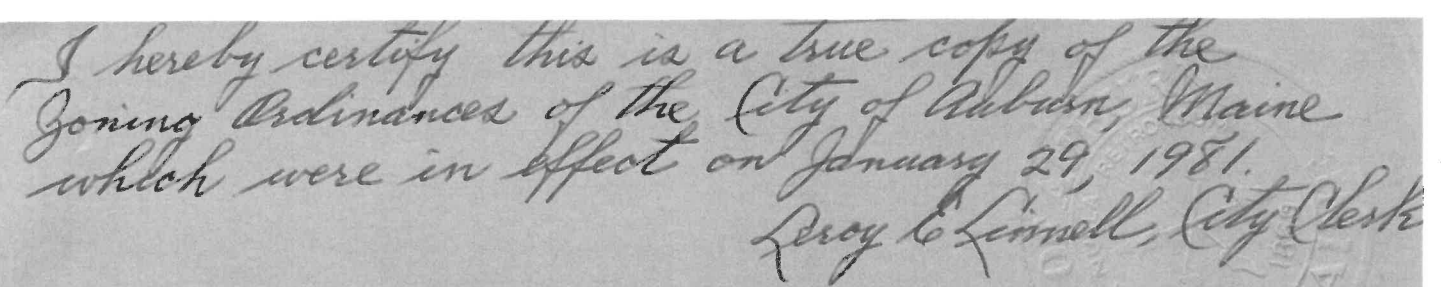 I hereby certify this is a true copy of the
Zoning Ordinances of the City of Auburn, Maine
which were in effect on January 29, 1981.
Leroy E Linnell, City Clerk